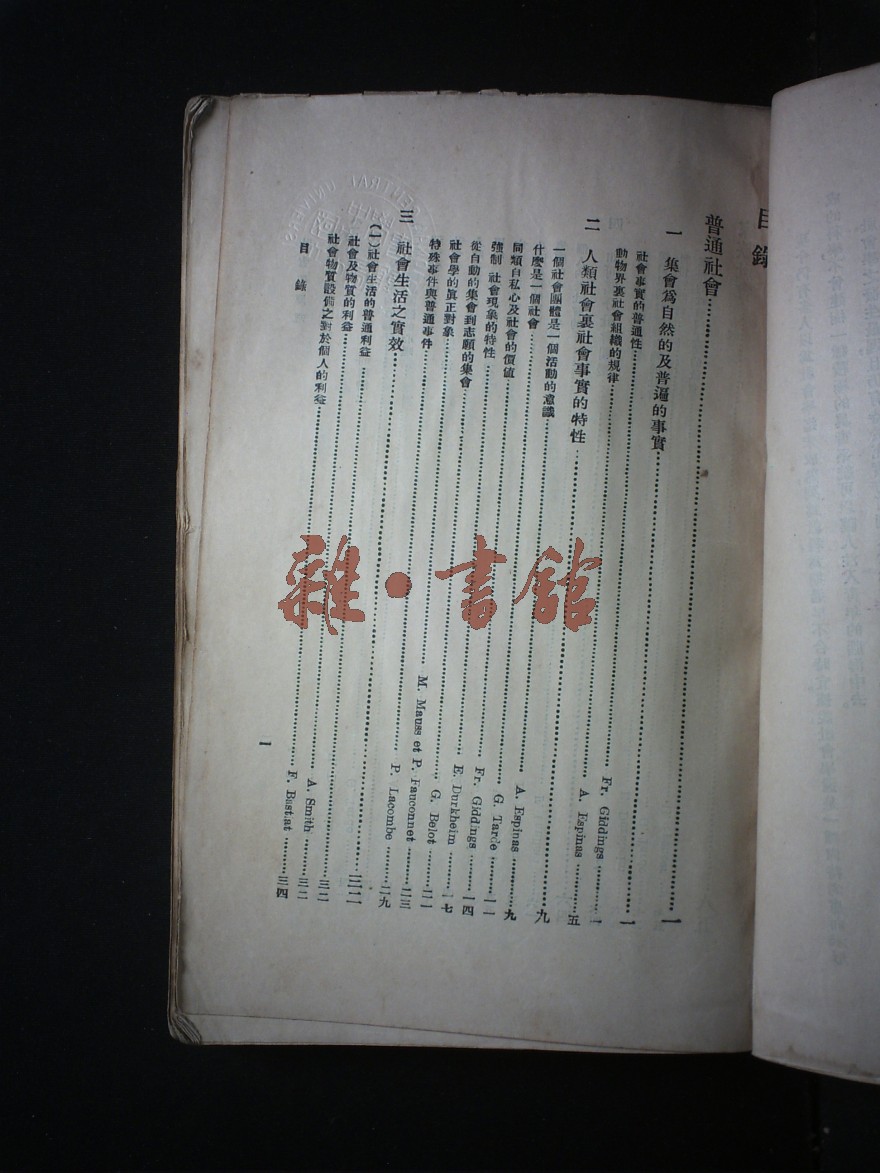 目錄
普通社會……一
一 集會爲自然的及普遍的事實……一
社會事實的普通性……Fr. Giddings……一
動物界裏社會組織的規律……A. Espinas……五
二 人類社會裏社會事實的特性……九
一個社會團體是一個活動的意識……A. Espinas……九
什麼是一個社會……G. Tarde……一一
同類自私心及社會的價值……Fr. Giddings……一四
強制 社會現象的特性……E. Durkheim……一七
從自動的集會到志願的集會……G. Belot……二一
社會學的眞正對象……M. Mauss et P. Fauconnet……二三
特殊事件與普通事件……P. Lacombe……二九
三 社會生活之實效……三二
(一)社會生活的普通利益……三二
社會及物質的利益……A. Smith……三二
社會物質設備之對於個人的利益……F. Bastiat……三四
目錄
一
雜·書館